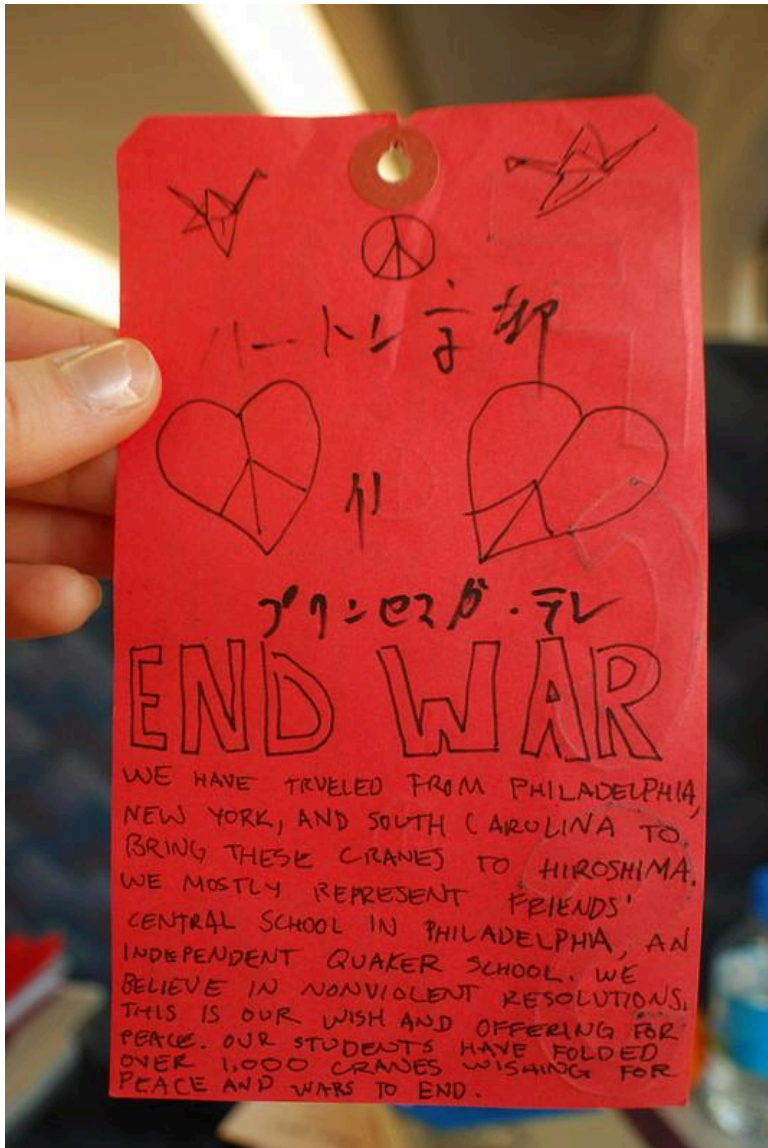 ハートン京都
プリンセスガ・テレ
END WAR
WE HAVE TRVELED FROM PHILADELPHIA,
NEW YORK, AND SOUTH CAROLINA TO
BRING THESE CRANES TO HIROSHIMA.
WE MOSTLY REPRESENT FRIENDS'
CENTRAL SCHOOL IN PHILADELPHIA, AN
INDEPENDENT QUAKER SCHOOL. WE
BELIEVE IN NONVIOLENT RESOLUTIONS.
THIS IS OUR WISH AND OFFERING FOR
PEACE. OUR STUDENTS HAVE FOLDED
OVER 1,000 CRANES WISHING FOR
PEACE AND WARS TO END.